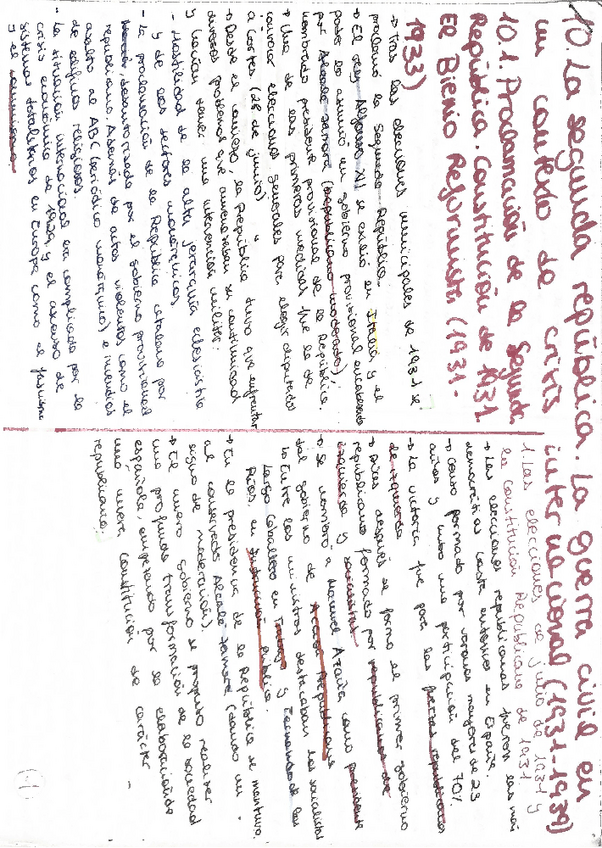 10. La segunda república. La guerra civil en
un contexto de crisis internacional (1931-1939)
10.1. Proclamación de la Segunda
República. Constitución de 1931.
El Bienio Reformista (1931-
1933)
→ Tras las elecciones municipales de 1931 se
proclamó la Segunda República.
→ El rey Alfonso XIII se exilió en Italia y el
poder lo asumió un gobierno provisional encabezado
por Alcalá Zamora (republicano moderado),
nombrado presidente provisional de la República.
→ Una de las primeras medidas fue la de
convocar elecciones generales para elegir diputados
a Cortes (28 de junio).
→ Desde el comienzo, la República tuvo que enfrentar
diversos problemas que amenazaban su continuidad
y hacían temer una intervención militar:
- Hostilidad de la alta jerarquía eclesiástica
y de los sectores monárquicos
- la proclamación de la República catalana por
Macià, desautorizada por el gobierno provisional
republicano. Además de actos violentos como el
asalto al ABC (periódico monárquico) e incendios
de edificios religiosos.
- la situación internacional era complicada por la
crisis económica de 1929 y el ascenso de
sistemas totalitarios en Europa como el fascismo
y el comunismo
1. Las elecciones de junio de 1931 y
la Constitución Republicana de 1931.
→ Las elecciones republicanas fueron las más
democráticas hasta entonces en España.
→ Censo formado por varones mayores de 23
años y hubo una participación del 70%.
→ La victoria fue para los partidos republicanos
de izquierda
→ Días después se formó el primer gobierno
republicano formado por republicanos de
izquierda y socialistas
→ Se nombró a Manuel Azaña como presidente
del gobierno de Acción Republicana
↳ Entre los ministros destacaban los socialistas
Largo Caballero en Trabajo y Fernando de los
Ríos, en Instrucción Pública.
→ En la presidencia de la República se mantuvo
al conservador Alcalá Zamora (dando un
signo de moderación).
→ El nuevo gobierno se propuso realizar
una profunda transformación de la sociedad
española, empezando por la elaboración de
una nueva Constitución de carácter
republicano.